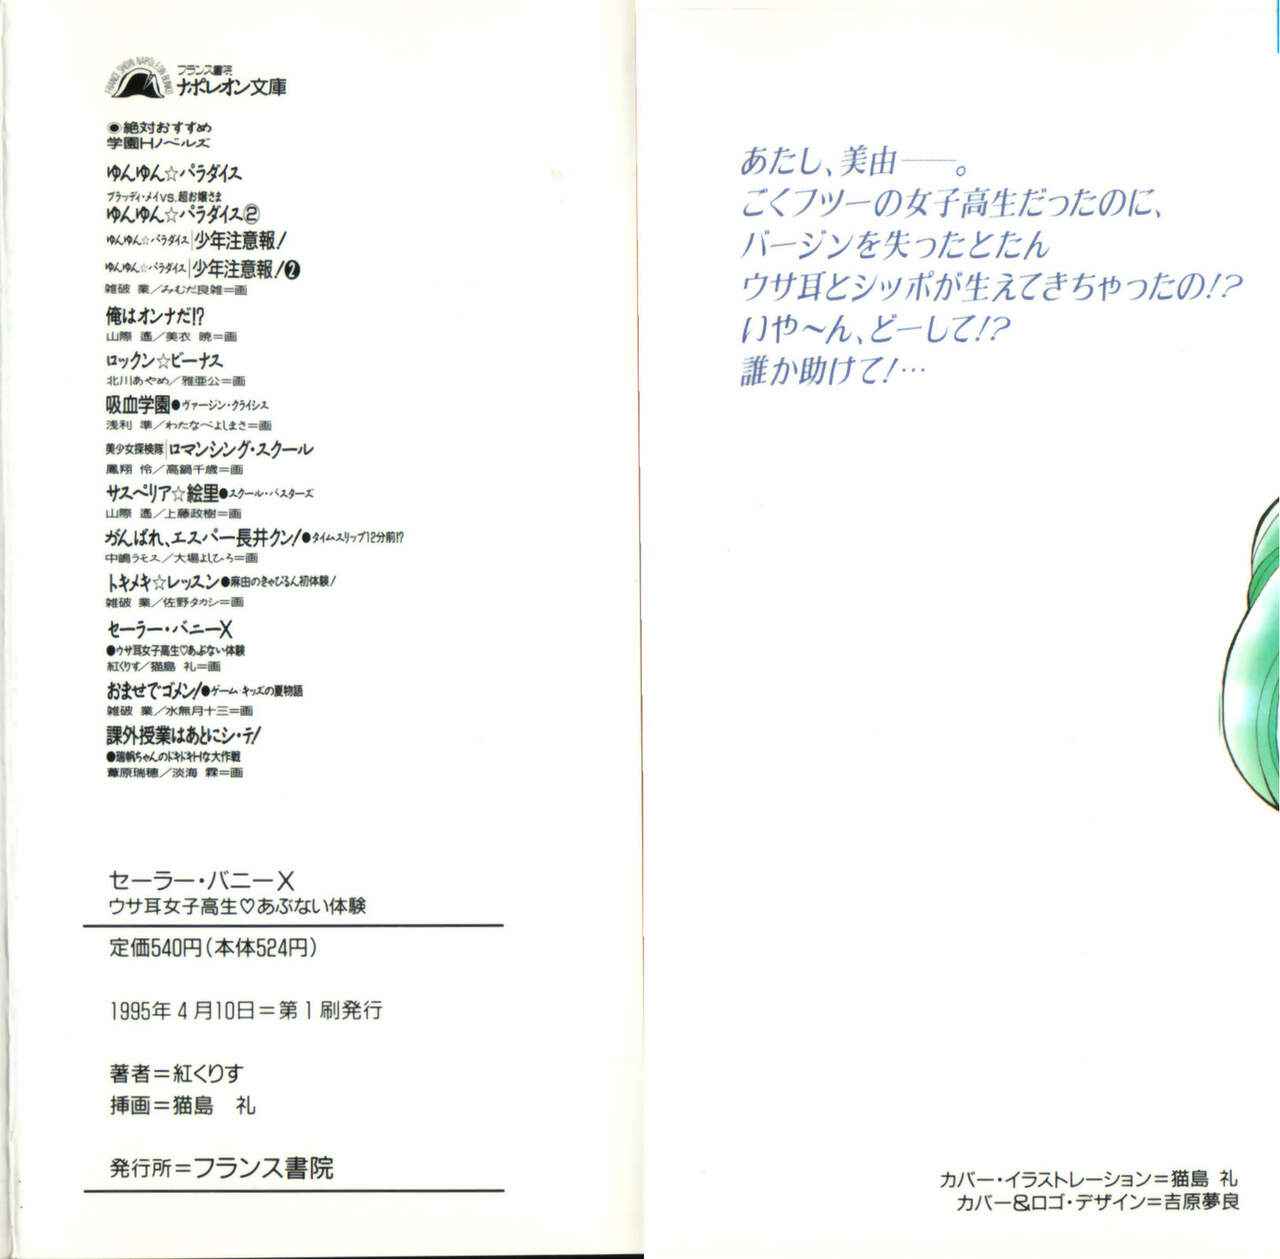 FRANCE SHOIN NAPOLEON BUNKO
フランス書院
ナポレオン文庫
◉絶対おすすめ
学園Hノベルズ
ゆんゆん☆パラダイス
ブラッディ・メイVS.超お嬢さま
ゆんゆん☆パラダイス②
ゆんゆん☆パラダイス|少年注意報!
ゆんゆん☆パラダイス|少年注意報!❷
雑破 業/みむだ良雑=画
俺はオンナだ!?
山際 遙/美衣 暁=画
ロックン☆ビーナス
北川あやめ/雅亜公=画
吸血学園●ヴァージン・クライシス
浅利 準/わたなべよしまさ=画
美少女探検隊|ロマンシング・スクール
鳳翔 伶/高鍋千歳=画
サスペリア☆絵里●スクール・バスターズ
山際 遙/上藤政樹=画
がんばれ、エスパー長井クン!●タイムスリップ12分前!?
中嶋ラモス/大場よしひろ=画
トキメキ☆レッスン●麻由のきゃぴるん初体験!
雑破 業/佐野タカシ=画
セーラー・バニーX
●ウサ耳女子高生♡あぶない体験
紅くりす/猫島 礼=画
おませでゴメン!●ゲーム・キッズの夏物語
雑破 業/水無月十三=画
課外授業はあとにシ・テ!
●瑞帆ちゃんのドキドキHな大作戦
葦原瑞穂/淡海 霖=画
セーラー・バニーX
ウサ耳女子高生♡あぶない体験
定価540円(本体524円)
1995年4月10日=第1刷発行
著者=紅くりす
挿画=猫島 礼
発行所=フランス書院
あたし、美由――。
ごくフツーの女子高生だったのに、
バージンを失ったとたん
ウサ耳とシッポが生えてきちゃったの!?
いや〜ん、どーして!?
誰か助けて!…
カバー・イラストレーション=猫島 礼
カバー&ロゴ・デザイン=吉原夢良